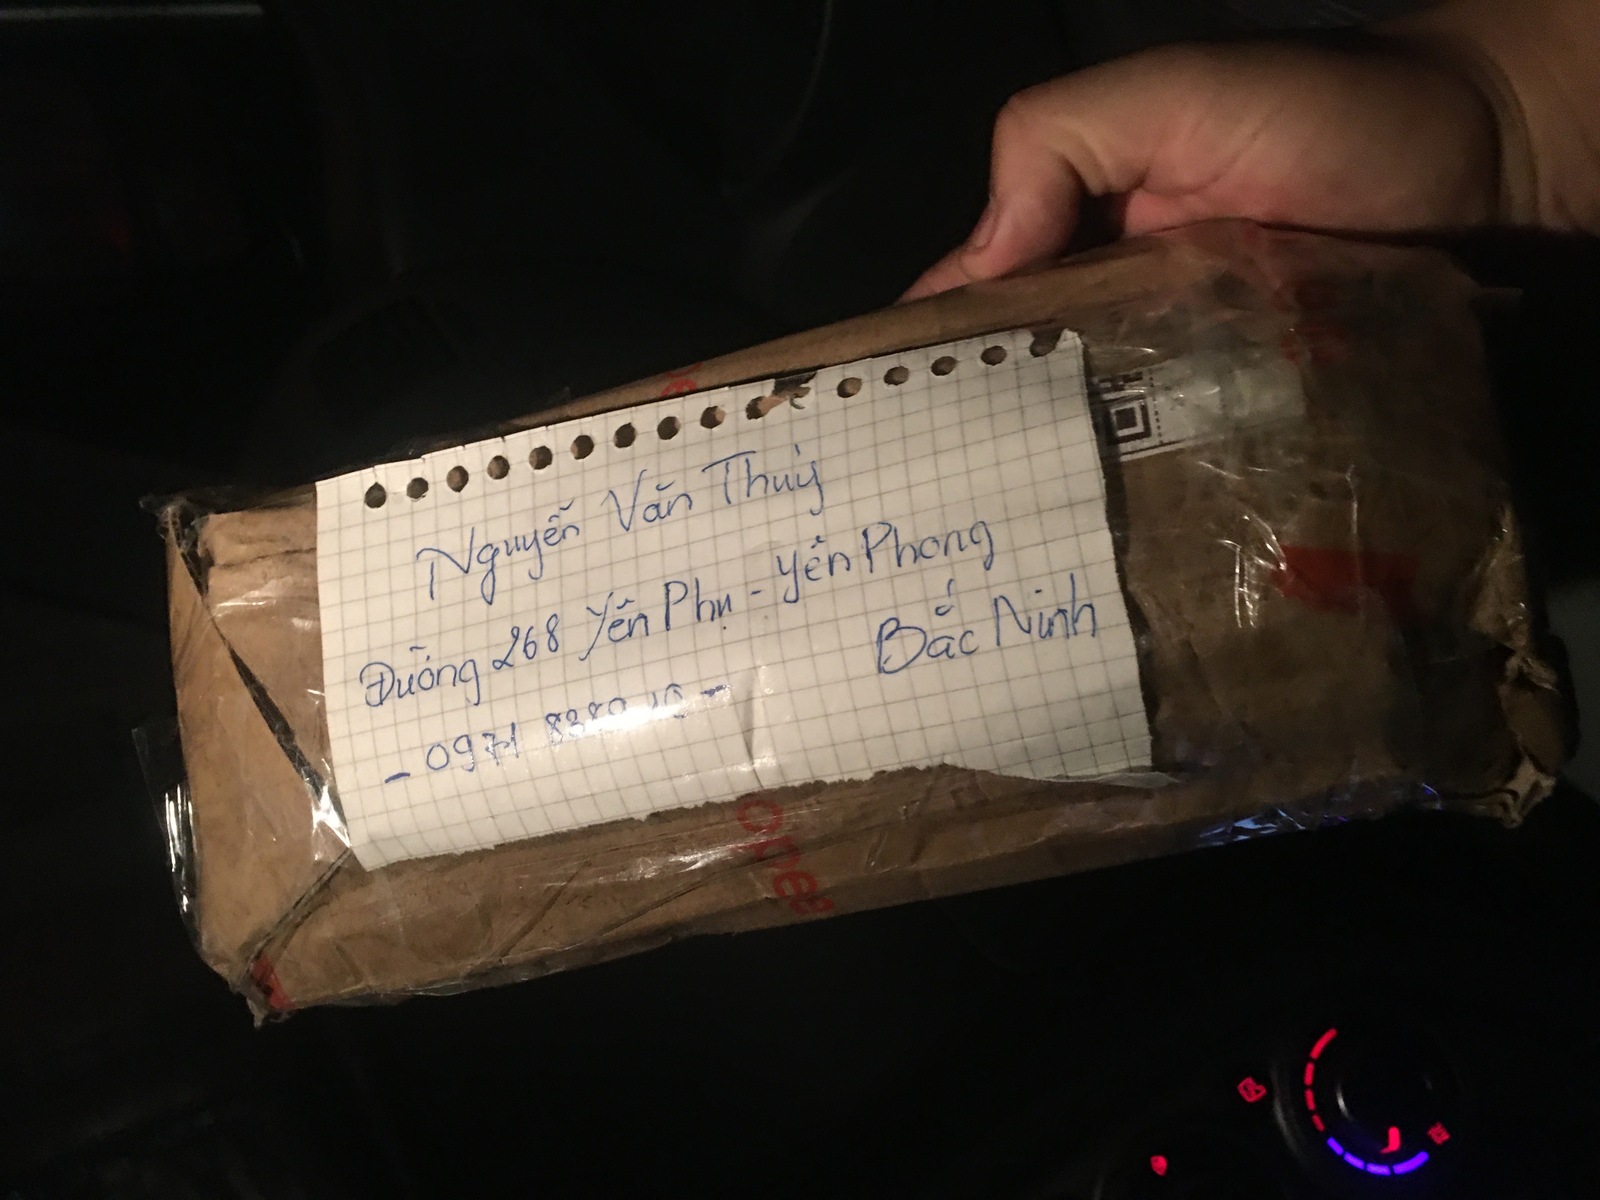 Nguyễn Văn Thuỷ
Đường 268 Yên Phụ - Yên Phong
Bắc Ninh
- 0971